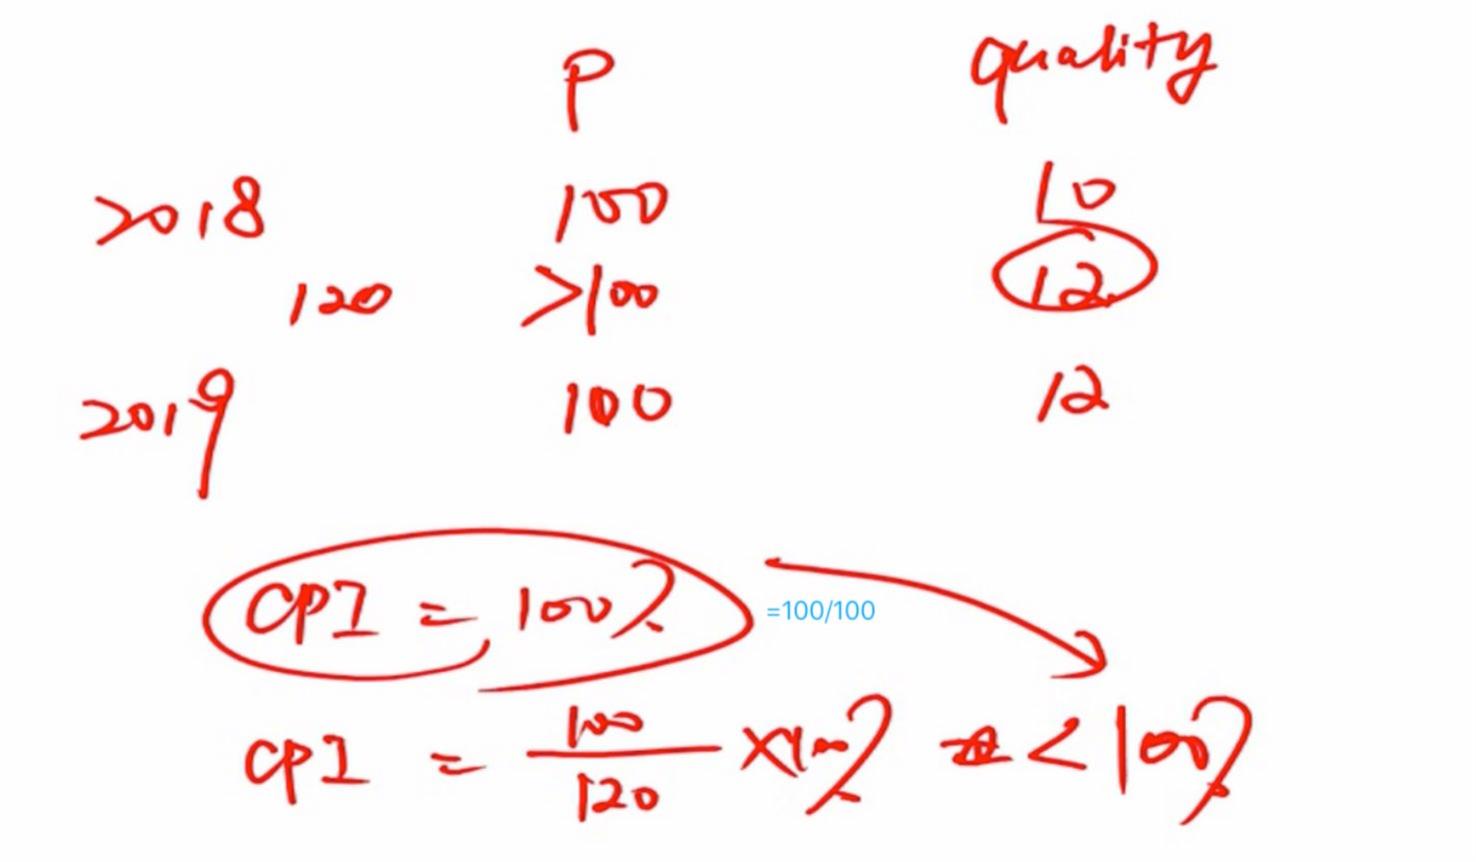 P quality
2018 100 10
120 >100 12
2019 100 12
CPI = 100% =100/100
CPI = 100/120 ×100% < 100%